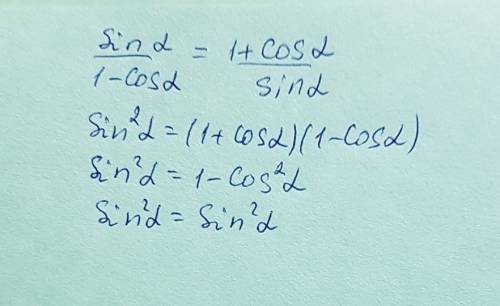 sin α / 1-cos α = 1+cos α / sin α
sin²α = (1+cos α)(1-cos α)
sin²α = 1-cos²α
sin²α = sin²α